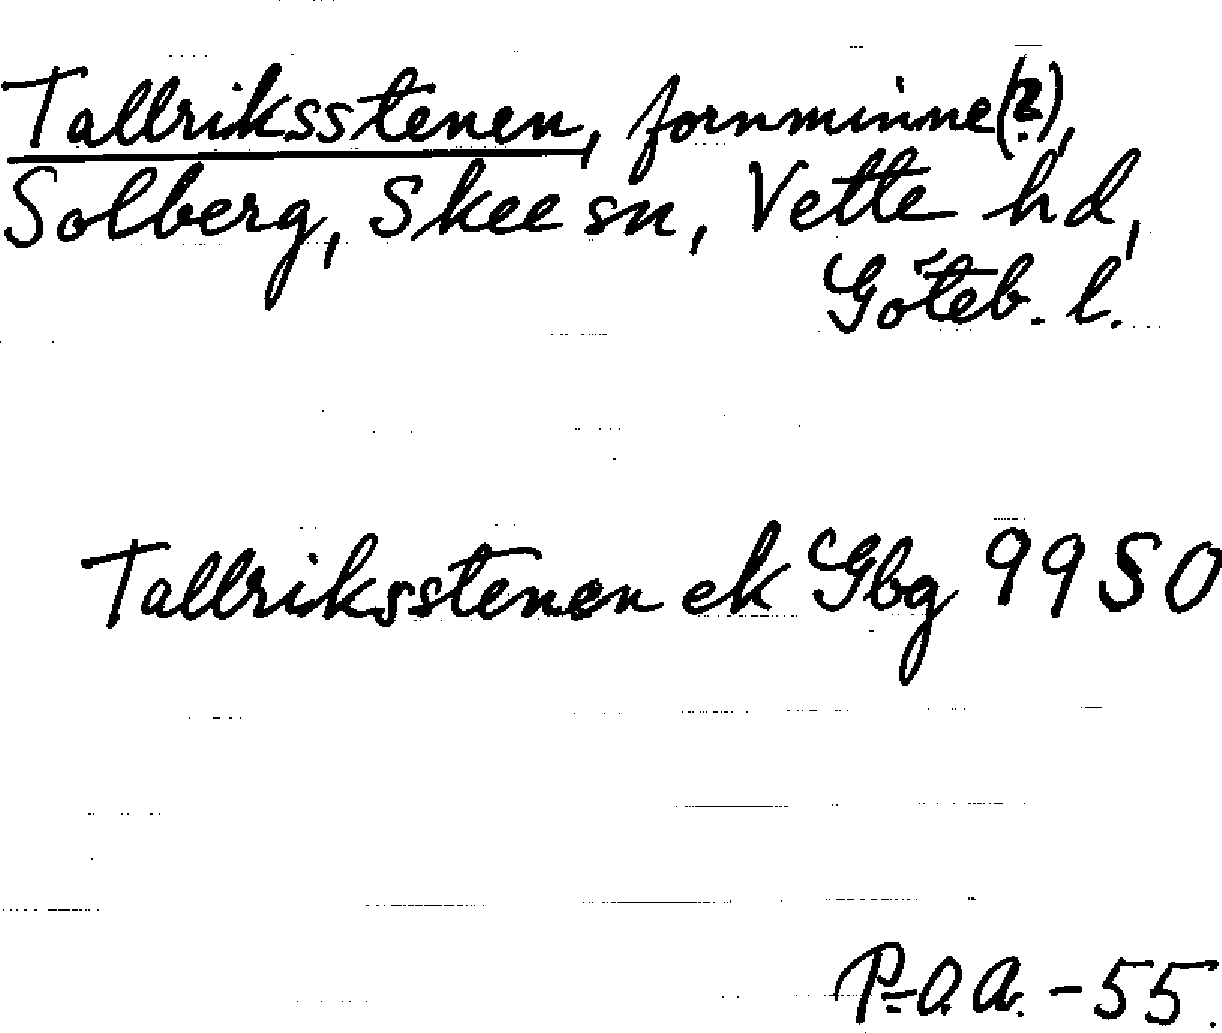 Tallriksstenen, fornminne(?),
Solberg, Skee sn, Vette hd,
Göteb. l.
Tallriksstenen ek Gbg 9950
P.-O.A. -55.